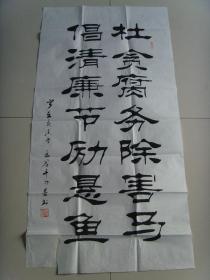 杜贪腐务除害马
倡清廉节励悬鱼